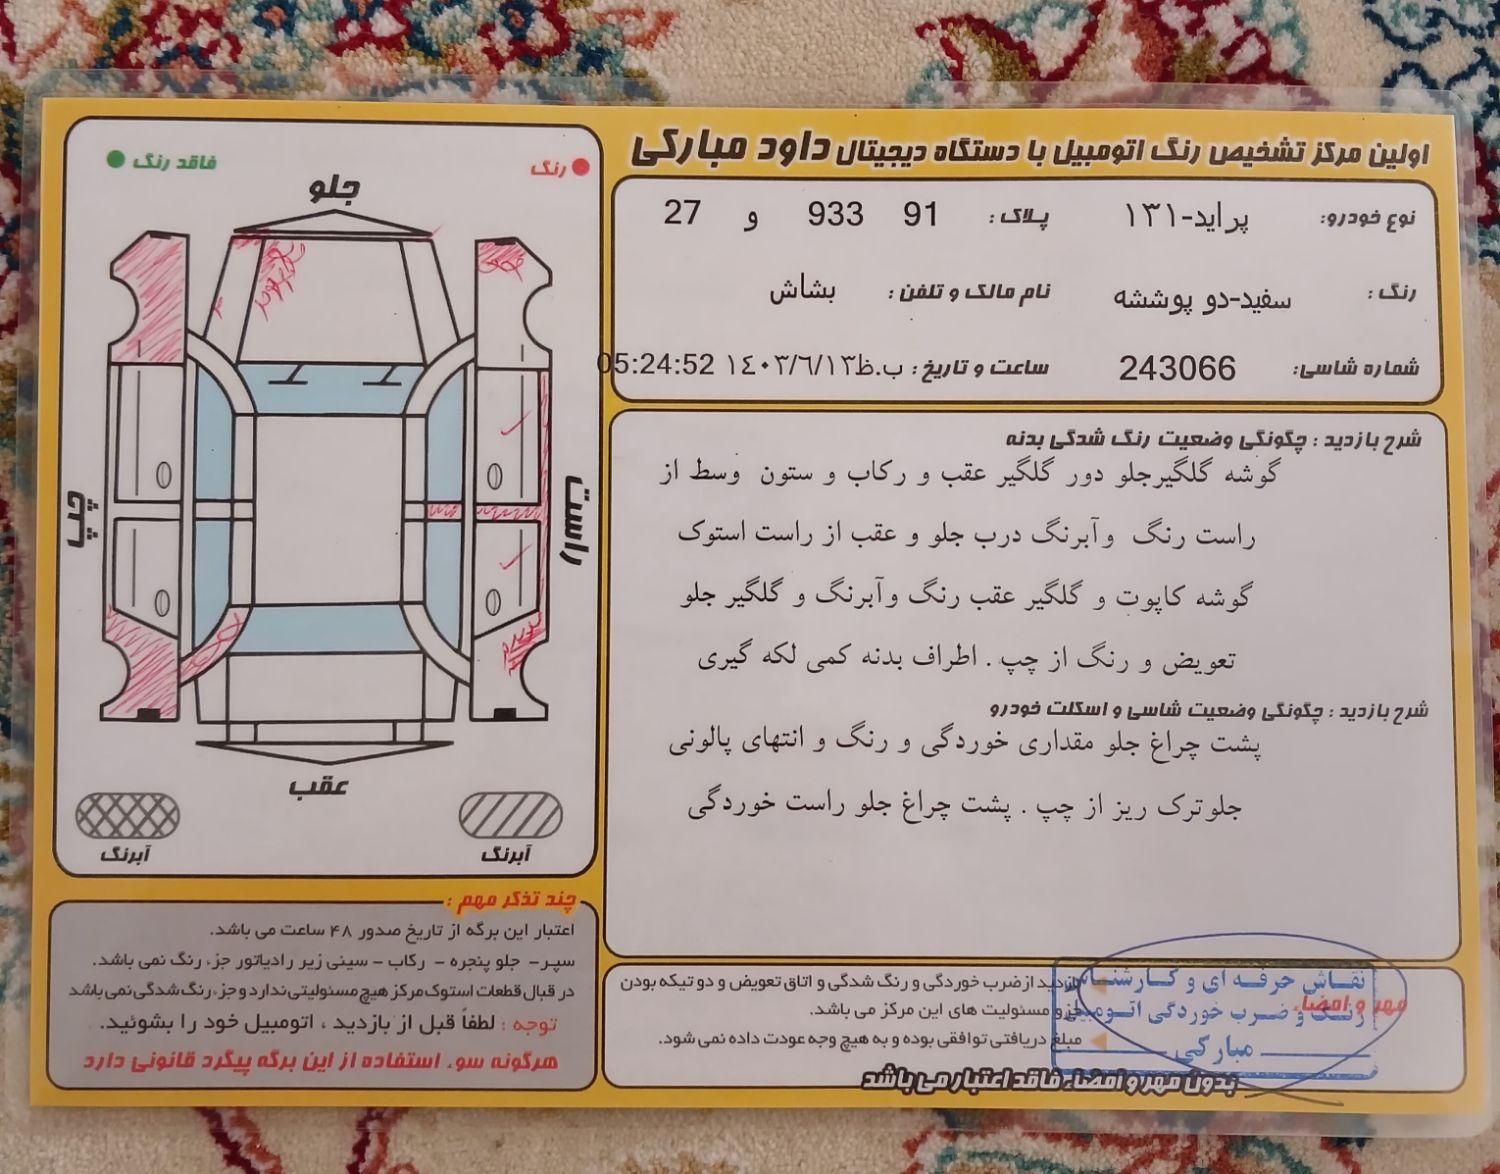 اولین مرکز تشخیص رنگ اتومبیل با دستگاه دیجیتال داود مبارکی
نوع خودرو: پراید-۱۳۱ پلاک: 91 933 و 27
رنگ: سفید-دو پوششه نام مالک و تلفن: بشاش
شماره شاسی: 243066 ساعت و تاریخ: ب.ظ ۱۴۰۳/۶/۱۳ 05:24:52
شرح بازدید: چگونگی وضعیت رنگ شدگی بدنه
گوشه گلگیرجلو دور گلگیر عقب و رکاب و ستون وسط از
راست رنگ وآبرنگ درب جلو و عقب از راست استوک
گوشه کاپوت و گلگیر عقب رنگ وآبرنگ و گلگیر جلو
تعویض و رنگ از چپ . اطراف بدنه کمی لکه گیری
شرح بازدید: چگونگی وضعیت شاسی و اسکلت خودرو
پشت چراغ جلو مقداری خوردگی و رنگ و انتهای پالونی
جلوترک ریز از چپ . پشت چراغ جلو راست خوردگی
بازدید از ضرب خوردگی و رنگ شدگی و اتاق تعویض و دو تیکه بودن
جزو مسئولیت های این مرکز می باشد.
مبلغ دریافتی توافقی بوده و به هیچ وجه عودت داده نمی شود.
مهر و امضاء
نقاش حرفه ای و کارشناس
رنگ و ضرب خوردگی اتومبیل
مبارکی
بدون مهر و امضاء فاقد اعتبار می باشد
رنگ
فاقد رنگ
جلو
راست
چپ
عقب
آبرنگ
آبرنگ
چند تذکر مهم :
اعتبار این برگه از تاریخ صدور ۴۸ ساعت می باشد.
سپر- جلو پنجره - رکاب - سینی زیر رادیاتور جزء رنگ نمی باشد.
در قبال قطعات استوک مرکز هیچ مسئولیتی ندارد و جزء رنگ شدگی نمی باشد
توجه : لطفاً قبل از بازدید ، اتومبیل خود را بشوئید.
هرگونه سوء استفاده از این برگه پیگرد قانونی دارد